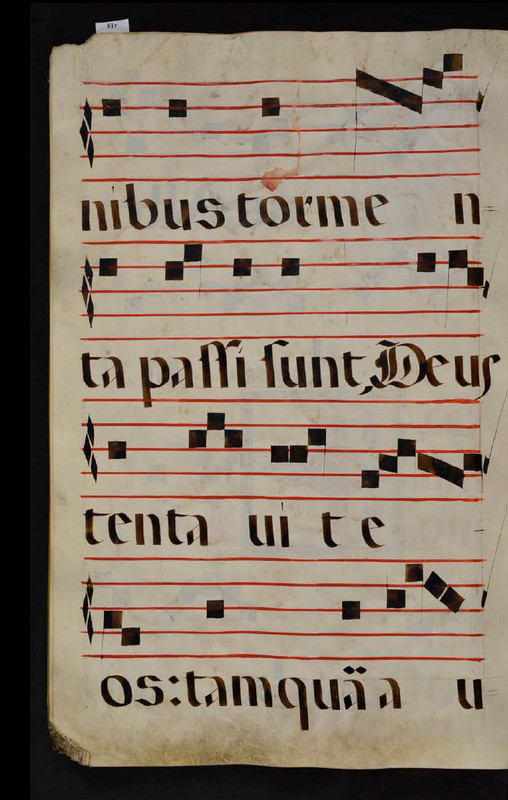 81v
nibus torme n
ta paſſi ſunt, Deus
tenta ui te
os: tamquä a u